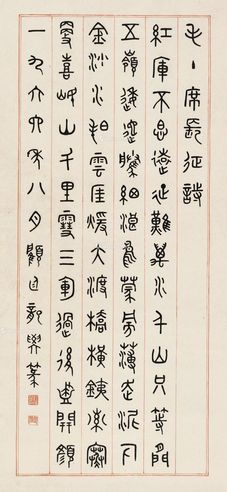 毛主席長征詩
紅軍不怕遠征難萬水千山只等閒
五嶺逶迤騰細浪烏蒙磅礴走泥丸
金沙水拍雲崖暖大渡橋橫鐵索寒
更喜岷山千里雪三軍過後盡開顏
一九六四年八月顧篆